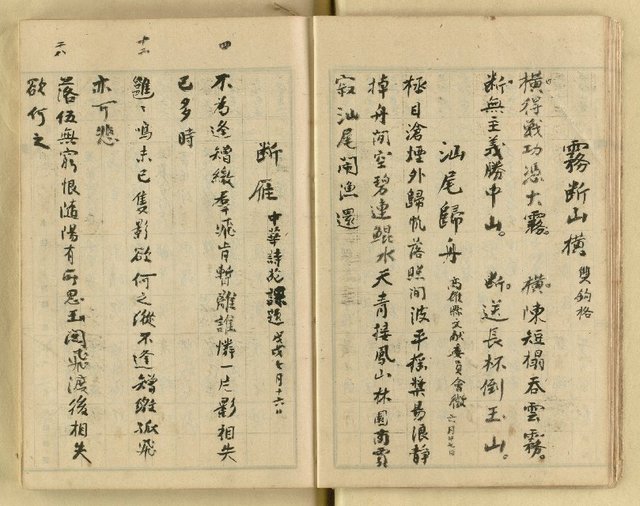 霧斷山橫　雙鈎格
橫得戰功憑大霧。橫陳短榻吞雲霧。
断無主義勝中山。断送長杯倒玉山。
汕尾歸舟　高雄縣文献委員會徵　六月廿七日
極目滄煙外歸帆落照間波平搖槳易浪静
掉舟閒空碧連鯤水天青接鳳山林園南
寂汕尾闹漁還
断雁　中華詩苑課題　戊戌七月十六日
四
不為逢矰繳羣飛肯暫離誰憐一片影相失
已多時
十二
雝〻鳴未已隻影欲何之縱不逢矰繳孤飛
亦可悲
六
落伍無窮恨随陽有所思玉関飛渡後相失
欲何之